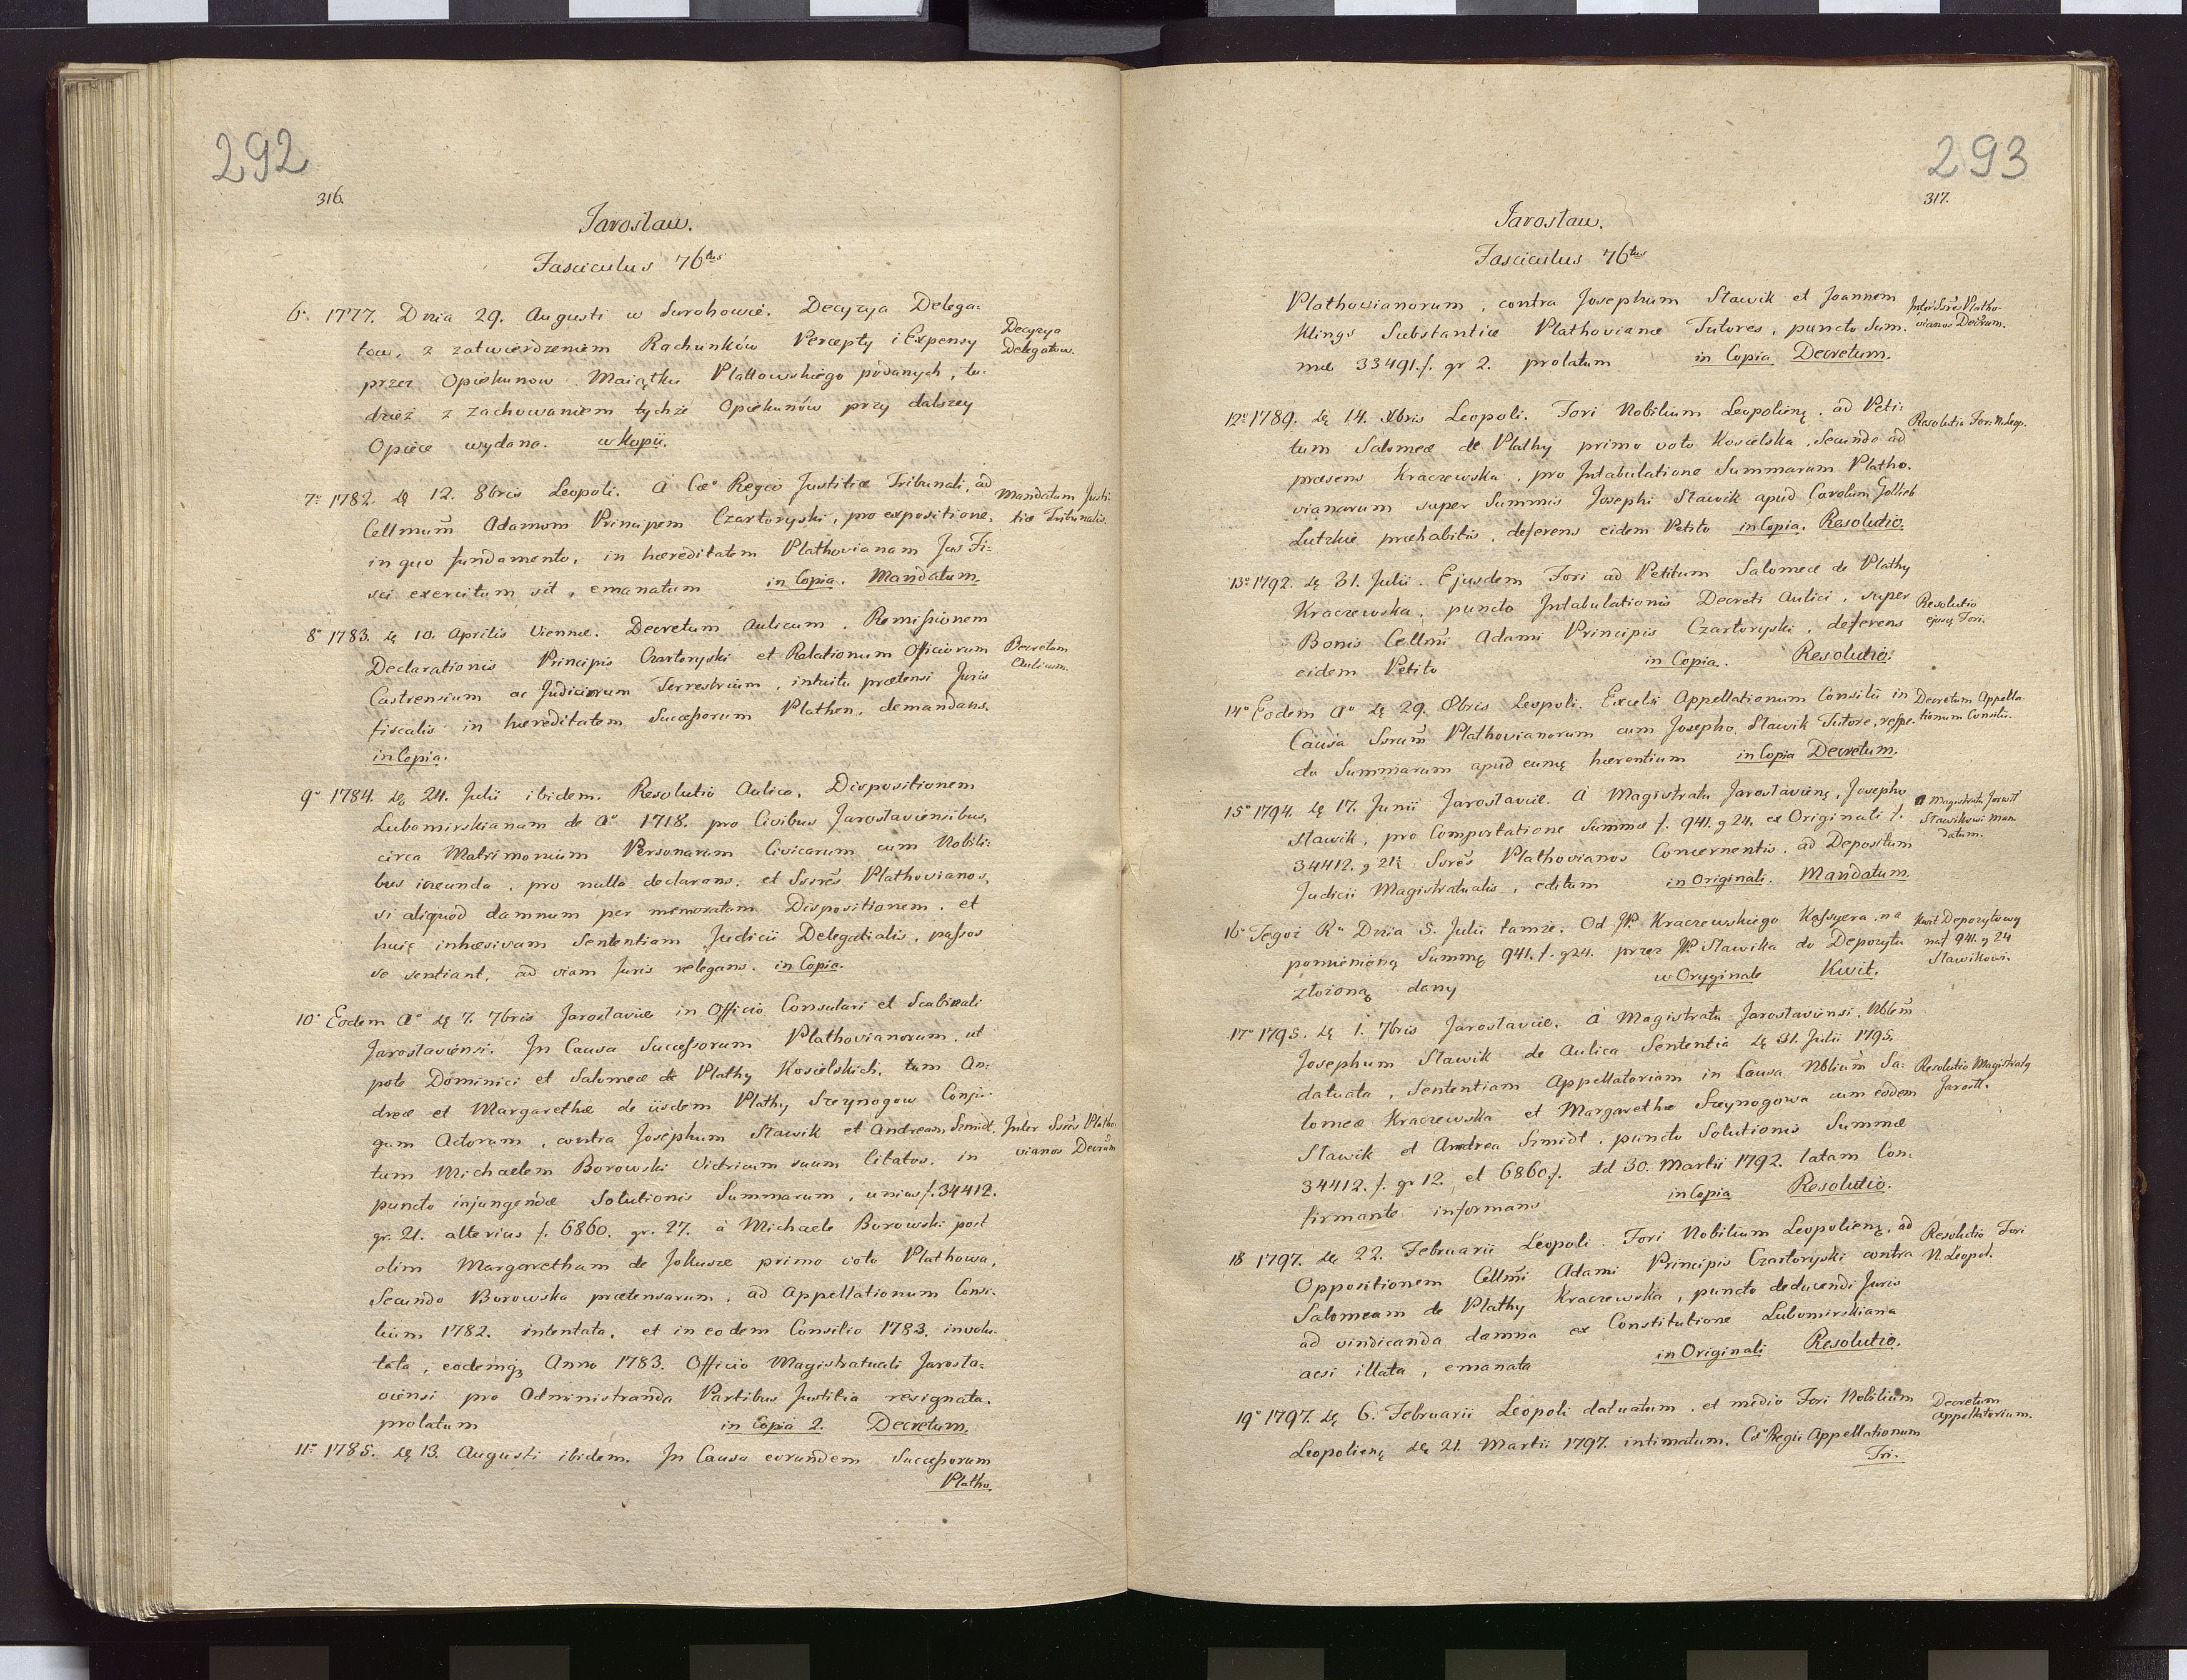 292
316.
Jarosław.
Fasciculus 76tus
6° 1777. Dnia 29. Augusti w Surohowie. Decyzya Delega:
tow, z zatwierdzeniem Rachunków Percepty i Expensy
przez Opiekunow Maiątku Plattowskiego podanych, tu:
dzież z zachowaniem tychże Opiekunów przy dalszey
Opiece wydana. w kopii.
Decyzya
Delegatow.
7° 1782. dę 12. 8bris Leopoli. A Cæo Regio Justitiæ Tribunali, ad
Cellmum Adamum Principem Czartoryski, pro expositione,
in quo fundamento, in hæreditatem Plathovianam Jus Fi:
sci exercitum sit, emanatum in Copia. Mandatum.
Mandatum Justi:
tiæ Tribunalis.
8° 1783. dę 10. Aprilis Viennæ. Decretum Aulicum. Remissionem
Declarationis Principis Czartoryski et Relationum Officiorum
Castrensium ac Judiciorum Terrestrium, intuitu prætensi Juris
fiscalis in hæreditatem Successorum Plathen, demandans.
in Copia.
Decretum
Aulicum.
9° 1784. dę 24. Julii ibidem. Resolutio Aulica, Dispositionem
Lubomirskianam de Ao 1718. pro Civibus Jaroslaviensibus,
circa Matrimonium Personarum Civicarum cum Nobili:
bus ineunda, pro nulla declarans, et Ssores Plathovianos,
si aliquod damnum per memoratam Dispositionem, et
huic inhæsivam Sententiam Judicii Delegatialis, passos
se sentiant, ad viam Juris relegans. in Copia.
10° Eodem Ao dę 7. 7bris Jaroslaviæ in Officio Consulari et Scabinali
Jaroslaviensi. In Causa Successorum Plathovianorum, ut
pote Dominici et Salomeæ de Plathy Koscielskich, tum An:
dreæ et Margarethæ de iisdem Plathy Szeynogow Conju:
gum Actorum, contra Josephum Stawik et Andream Szmidt,
tum Michaelem Borowski Vidricum suum Citatos, in
puncto injungendæ Solutionis Summarum, unius f. 34412.
gr. 21. alterius f. 6860. gr. 27. à Michaele Borowski post
olim Margaretham de Johusze primo voto Plathowa,
Secundo Borowska prætensarum, ad Appellationum Consi:
lium 1782. intentata, et in eodem Consilio 1783. involu:
tata, eodemq3 Anno 1783. Officio Magistratuali Jarosla:
viensi pro Administranda Partibus Justitia resignata,
prolatum in Copia 2. Decretum.
Inter Ssres Platho
vianos Decrum
11° 1785. dę 13. Augusti ibidem. In Causa eorundem Successorum
Platho.
293
317.
Jarosław.
Fasciculus 76tus
Plathovianorum, contra Josephum Stawik et Joannem
Klings Substantiæ Plathovianæ Tutores, puncto Sum.
mæ 33491. f. gr 2. prolatum in Copia Decretum.
Inter Ssres Platho-
vianos Decrum.
12° 1789. dę 14. Xbris Leopoli. Fori Nobilium Leopolienę, ad Peti:
tum Salomeæ de Plathy primo voto Koscielska, Secundo ad
præsens Kraczewska, pro Intabulatione Summarum Platho.
vianarum super Summis Josephi Stawik apud Carolum Gottlieb
Lutzkie præhabitis, deferens eidem Petito in Copia. Resolutio.
Resolutio For: N. Leop.
13° 1792. dę 31. Julii. Ejusdem Fori ad Petitum Salomeæ de Plathy
Kraczewska, puncto Intabulationis Decreti Aulici, super
Bonis Cellmi Adami Principis Czartoryski, deferens
eidem Petito in Copia. Resolutio.
Resolutio
ejusq Fori.
14° Eodem Ao dę 29. 8bris Leopoli. Excelsi Appellationum Consilii in
Causa Ssrum Plathovianorum cum Josepho Stawik Tutore, respe.
ctu Summarum apud eumę hærentium in Copia Decretum.
Decretum Appella-
tionum Consilii.
15° 1794. dę 17. Junii Jaroslaviæ. A Magistratu Jaroslavienę, Josepho
Stawik, pro Comportatione Summæ f. 941. g 24. ex Originali f.
34412. g 21½ Ssres Plathovianos Concernentis, ad Depositum
Judicii Magistratualis, editum in Originali. Mandatum.
A Magistratu Jarosł
Stawikowi Man
datum.
16° Tegoż Ru Dnia 5. Julii tamże. Od JP. Kraczewskiego Kassyera na
pomienioną Summę 941. f. g 24. przez JP. Stawika do Depozytu
złożoną dany w Oryginale Kwit.
Kwit Depozytowy
na f 941. g 24
Stawikowi.
17° 1795. dę 1. 7bris Jaroslaviæ. A Magistratu Jaroslaviensi, Nblem
Josephum Stawik de Aulica Sententia dę 31. Julii 1795.
datuata, Sententiam Appellatoriam in Causa Nblium Sa:
lomeæ Kraczewska et Margarethæ Szeynogowa cum eodem
Stawik et Andrea Szmidt, puncto Solutionis Summæ
34412. f. gr 12. et 6860. f. dd 30. Martii 1792. latam Con:
firmante informans in Copia Resolutio.
Resolutio Magistratę
Jarosł.
18 1797. dę 22. Februarii Leopoli. Fori Nobilium Leopolienę, ad
Oppositionem Cellmi Adami Principis Czartoryski contra
Salomeam de Plathy Kraczewska, puncto deducendi Juris
ad vindicanda damna ex Constitutione Lubomirskiana
acsi illata, emanata in Originali Resolutio.
Resolutio Fori
N. Leopol.
19° 1797. dę 6. Februarii Leopoli datuatum, et medio Fori Nobilium
Leopolienę dę 21. Martii 1797. intimatum, Cæo Regii Appellationum
Tri.
Decretum
Appellatorium.